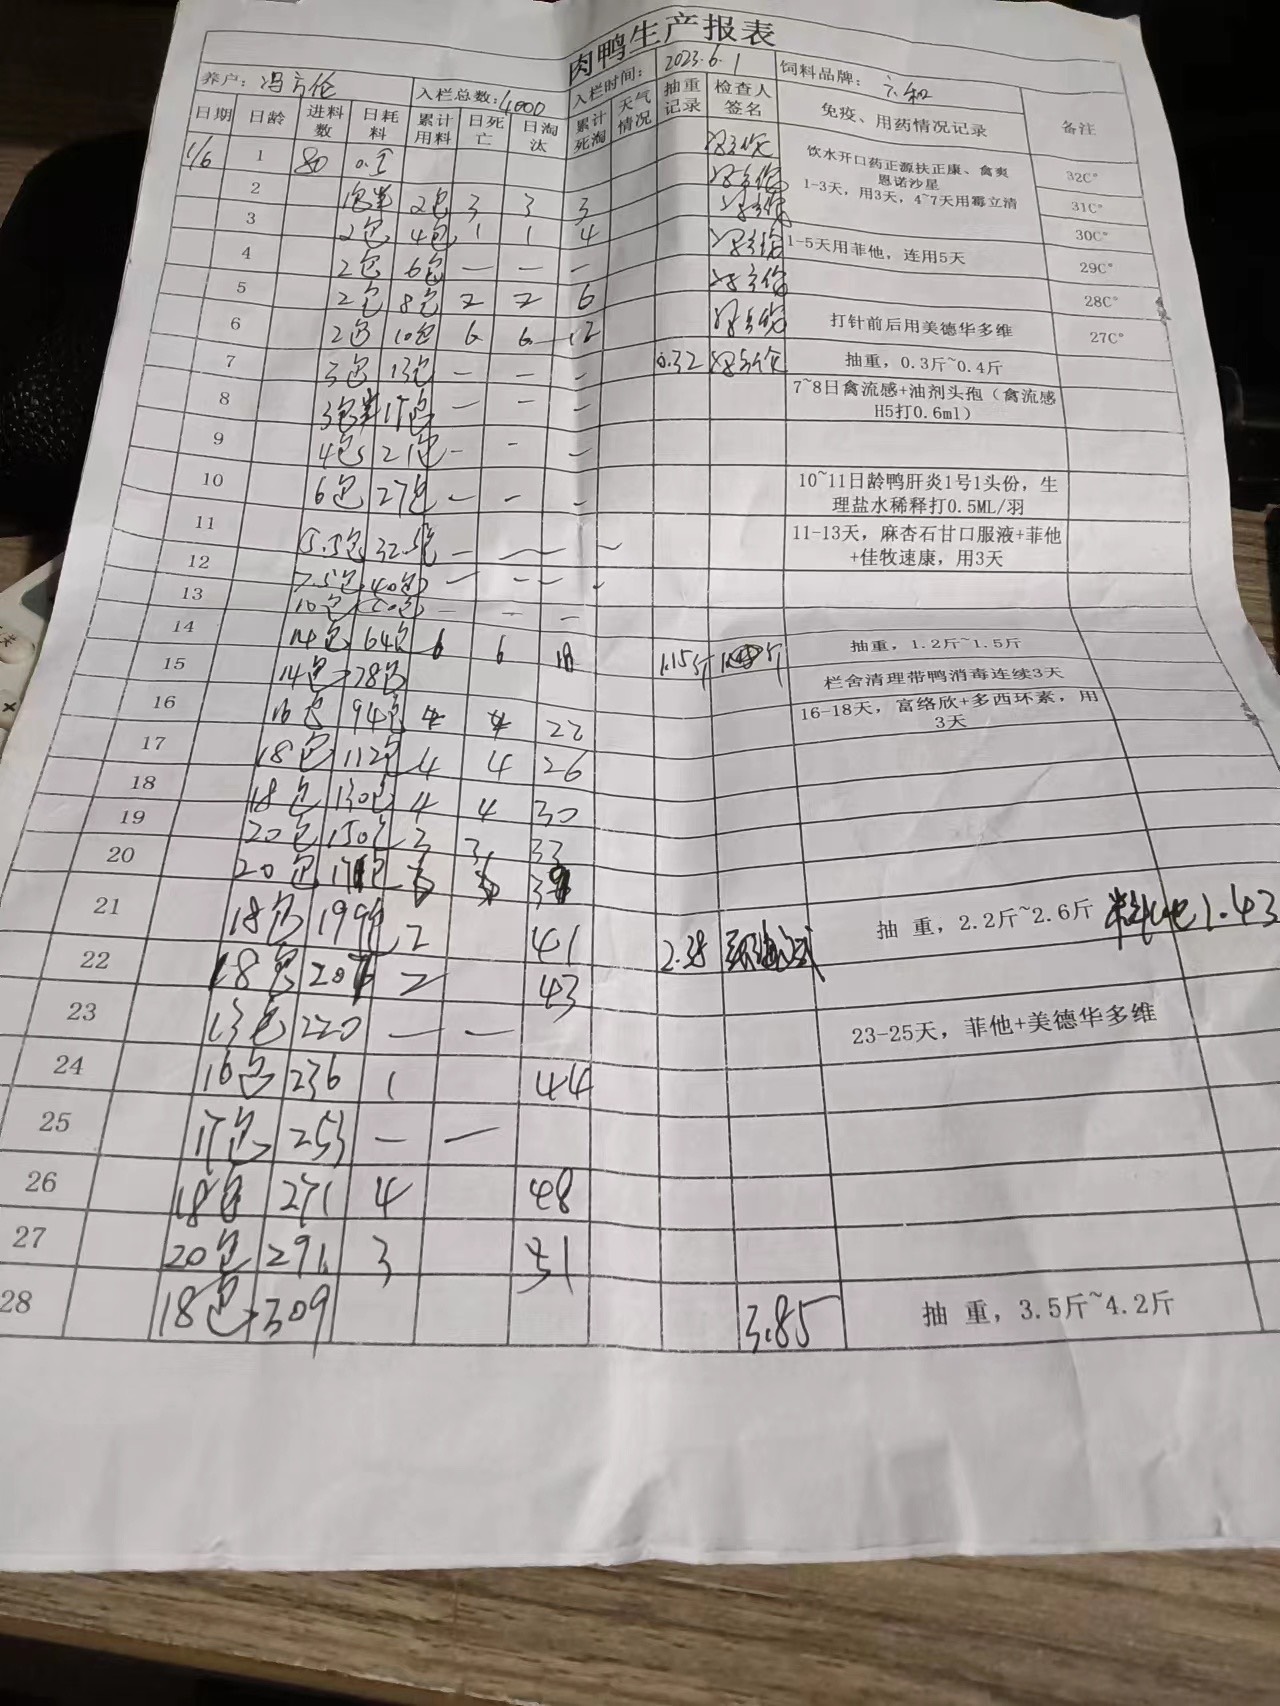 肉鸭生产报表
养户：冯方伦 入栏总数：4000 入栏时间：2023.6.1 饲料品牌：六和
日期 日龄 进料数 日耗料 累计用料 日死亡 日淘汰 累计死淘 天气情况 抽重记录 检查人签名 免疫、用药情况记录 备注
1/6 1 80 0.5 饮水开口药正源扶正康、禽爽 32C°
恩诺沙星
2 1包半 2包 3 3 3 1-3天，用3天，4~7天用霉立清 31C°
3 2包 4包 1 1 4 30C°
4 2包 6包 — — — 1-5天用菲他，连用5天 29C°
5 2包 8包 2 2 6 28C°
6 2包 10包 6 6 12 打针前后用美德华多维 27C°
7 3包 13包 — — — 0.32 抽重，0.3斤~0.4斤
8 3包半 17包 — — — 7~8日禽流感+油剂头孢（禽流感
H5打0.6ml）
9 4包 21包 - - -
10 6包 27包 — - - 10~11日龄鸭肝炎1号1头份，生
理盐水稀释打0.5ML/羽
11 5.5包 32.5包 — — — 11-13天，麻杏石甘口服液+菲他
+佳牧速康，用3天
12 7.5包 40包 — - - -
13 10包 50包 — - -
14 14包 64包 6 6 18 1.15斤 抽重，1.2斤~1.5斤
15 14包 78包 栏舍清理带鸭消毒连续3天
16 16包 94包 4 4 22 16-18天，富络欣+多西环素，用
3天
17 18包 112包 4 4 26
18 18包 130包 4 4 30
19 20包 150包 3 3 33
20 20包
21 18包 2 41 2.38 抽 重，2.2斤~2.6斤 料比1.43
22 18包 207 2 43
23 13包 220 — —
23-25天，菲他+美德华多维
24 16包 236 1 44
25 17包 253 — —
26 18包 271 4 48
27 20包 291 3 51
28 18包 309 3.85 抽 重，3.5斤~4.2斤